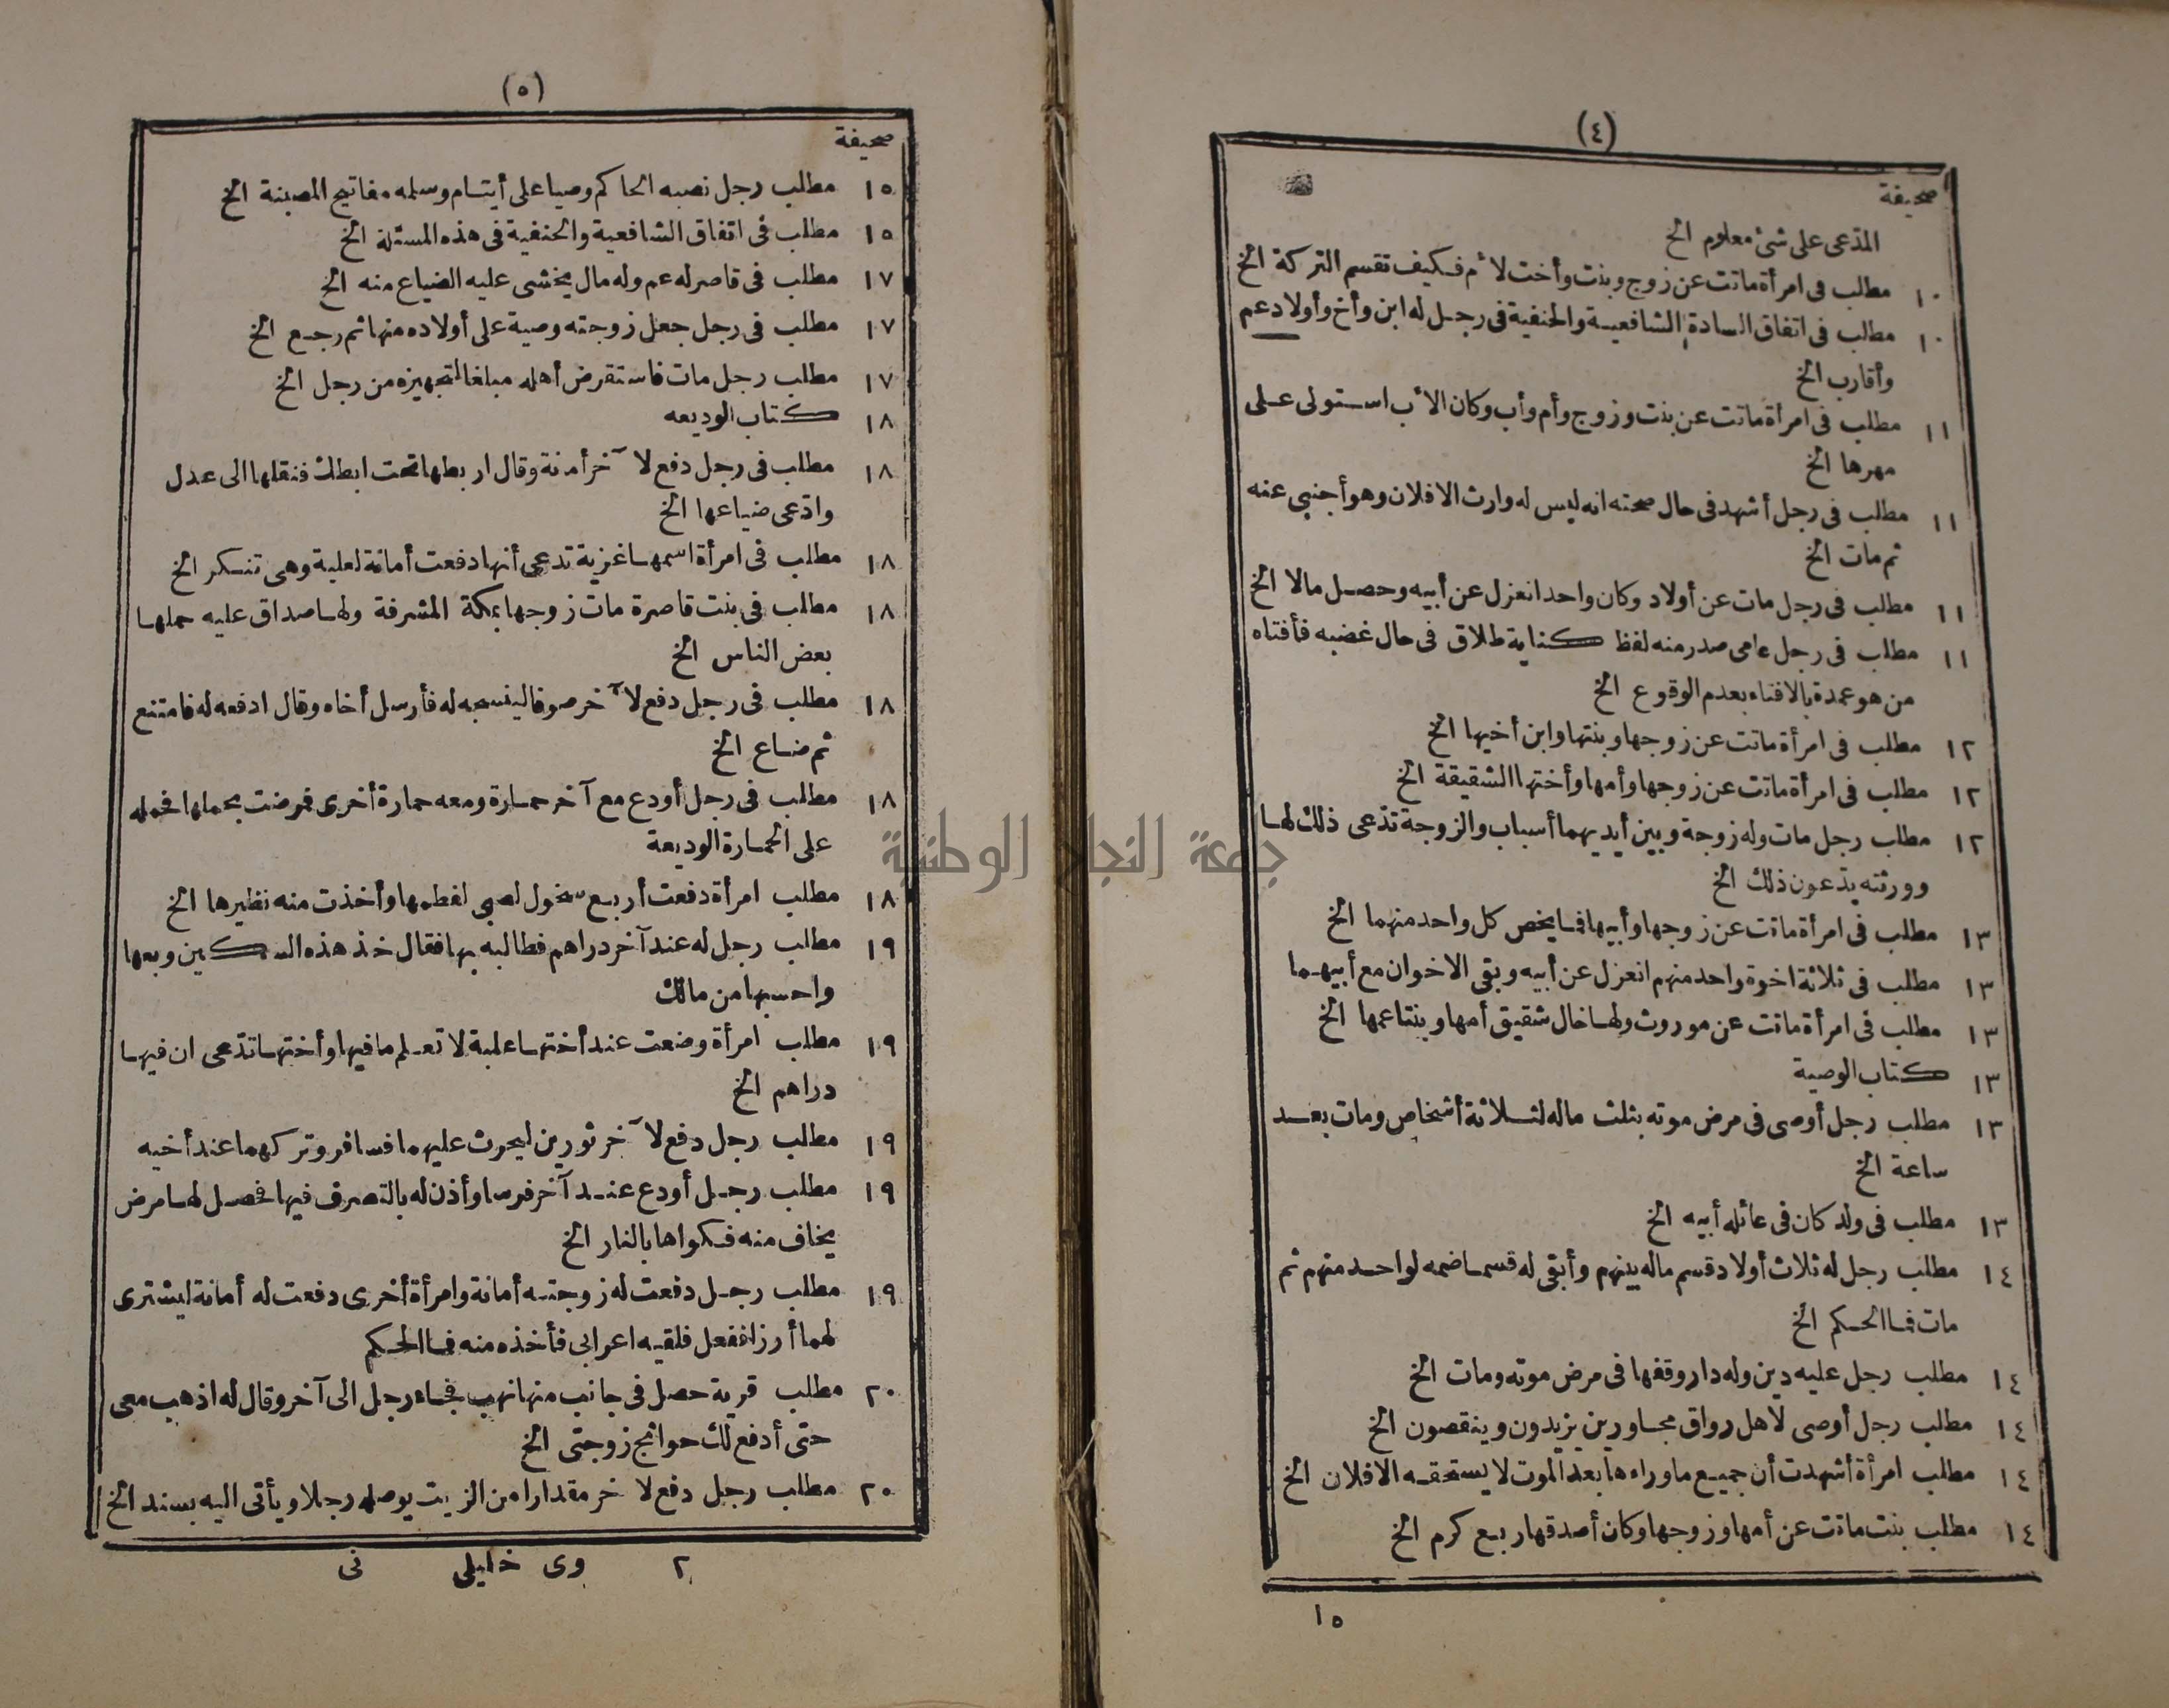 (٤)
صحيفة
المدّعى على شئ معلوم الخ
١٠ مطلب فى امرأة ماتت عن زوج وبنت وأخت لأم فكيف تقسم التركة الخ
١٠ مطلب فى اتفاق السادة الشافعية والحنفية فى رجل له ابن وأخ وأولاد عم
وأقارب الخ
١١ مطلب فى امرأة ماتت عن بنت وزوج وأم وأب وكان الأب استولى على
مهرها الخ
١١ مطلب فى رجل أشهد فى حال صحته انه ليس له وارث الا فلان وهو أجنبى عنه
ثم مات الخ
١١ مطلب فى رجل مات عن أولاد وكان واحد انعزل عن أبيه وحصل مالا الخ
١١ مطلب فى رجل عامى صدر منه لفظ كناية طلاق فى حال غضبه فأفتاه
من هو عمدة بالافتاء بعدم الوقوع الخ
١٢ مطلب فى امرأة ماتت عن زوجها وبنتها وابن أخيها الخ
١٢ مطلب فى امرأة ماتت عن زوجها وأمها وأختها الشقيقة الخ
١٢ مطلب رجل مات وله زوجة وبين أيديهما أسباب والزوجة تدّعى ذلك لها
وورثته يدّعون ذلك الخ
١٣ مطلب فى امرأة ماتت عن زوجها وأبيها فما يخص كل واحد منهما الخ
١٣ مطلب فى ثلاثة اخوة واحد منهم انعزل عن أبيه وبقى الاخوان مع أبيهما
١٣ مطلب فى امرأة ماتت عن موروث ولها خال شقيق أمها وبنتا عمها الخ
١٣ كتاب الوصية
١٣ مطلب رجل أوصى فى مرض موته بثلث ماله لثلاثة أشخاص ومات بعد
ساعة الخ
١٣ مطلب فى ولد كان فى عائله أبيه الخ
١٤ مطلب رجل له ثلاث أولاد قسم ماله بينهم وأبقى له قسما ضمه لواحد منهم ثم
مات فما الحكم الخ
١٤ مطلب رجل عليه دين وله دار وقفها فى مرض موته ومات الخ
١٤ مطلب رجل أوصى لأهل رواق مجاورين يزيدون وينقصون الخ
١٤ مطلب امرأة أشهدت أن جميع ما وراءها بعد الموت لا يستحقه الا فلان الخ
١٤ مطلب بنت ماتت عن أمها وزوجها وكان أصدقها ربع كرم الخ
١٥
(٥)
صحيفة
١٥ مطلب رجل نصبه الحاكم وصيا على أيتام وسلمه مفاتيح المصبنة الخ
١٥ مطلب فى اتفاق الشافعية والحنفية فى هذه المسئلة الخ
١٧ مطلب فى قاصر له عم وله مال يخشى عليه الضياع منه الخ
١٧ مطلب فى رجل جعل زوجته وصية على أولاده منها ثم رجع الخ
١٧ مطلب رجل مات فاستقرض أهله مبلغا لتجهيزه من رجل الخ
١٨ كتاب الوديعه
١٨ مطلب فى رجل دفع لآخر أمنة وقال اربطها تحت ابطك فنقلها الى عدل
وادّعى ضياعها الخ
١٨ مطلب فى امرأة اسمها غزية تدعى أنها دفعت أمانة لعلية وهى تنكر الخ
١٨ مطلب فى بنت قاصرة مات زوجها بمكة المشرفة ولها صداق عليه حملها
بعض الناس الخ
١٨ مطلب فى رجل دفع لآخر صوفا لينسجه له فأرسل أخاه وقال ادفعه له فامتنع
ثم ضاع الخ
١٨ مطلب فى رجل أودع مع آخر حمارة ومعه حمارة أخرى فمرضت بحملها فحمله
على الحمارة الوديعة
١٨ مطلب امرأة دفعت أربع سخول لصبى لفطمها وأخذت منه نظيرها الخ
١٩ مطلب رجل له عند آخر دراهم فطالبه بها فقال خذ هذه السكين وبعها
واحسبها من مالك
١٩ مطلب امرأة وضعت عند أختها علبة لا تعلم ما فيها وأختها تدّعى ان فيها
دراهم الخ
١٩ مطلب رجل دفع لآخر ثورين ليحرث عليهما فسافر وتركهما عند أخيه
١٩ مطلب رجل أودع عند آخر فرسا وأذن له بالتصرف فيها فحصل لها مرض
يخاف منه فكواها بالنار الخ
١٩ مطلب رجل دفعت له زوجته أمانة وامرأة أخرى دفعت له أمانة ليشترى
لهما أرزا ففعل فلقيه اعرابى فأخذه منه فما الحكم
٢٠ مطلب قرية حصل فى جانب منها نهب فجاء رجل الى آخر وقال له اذهب معى
حتى أدفع لك حوائج زوجتى الخ
٢٠ مطلب رجل دفع لآخر مقدارا من الزيت يوصله رجلا ويأتى اليه بسند الخ
٢ وى خليلى نى
جمعة النجار الوطنية